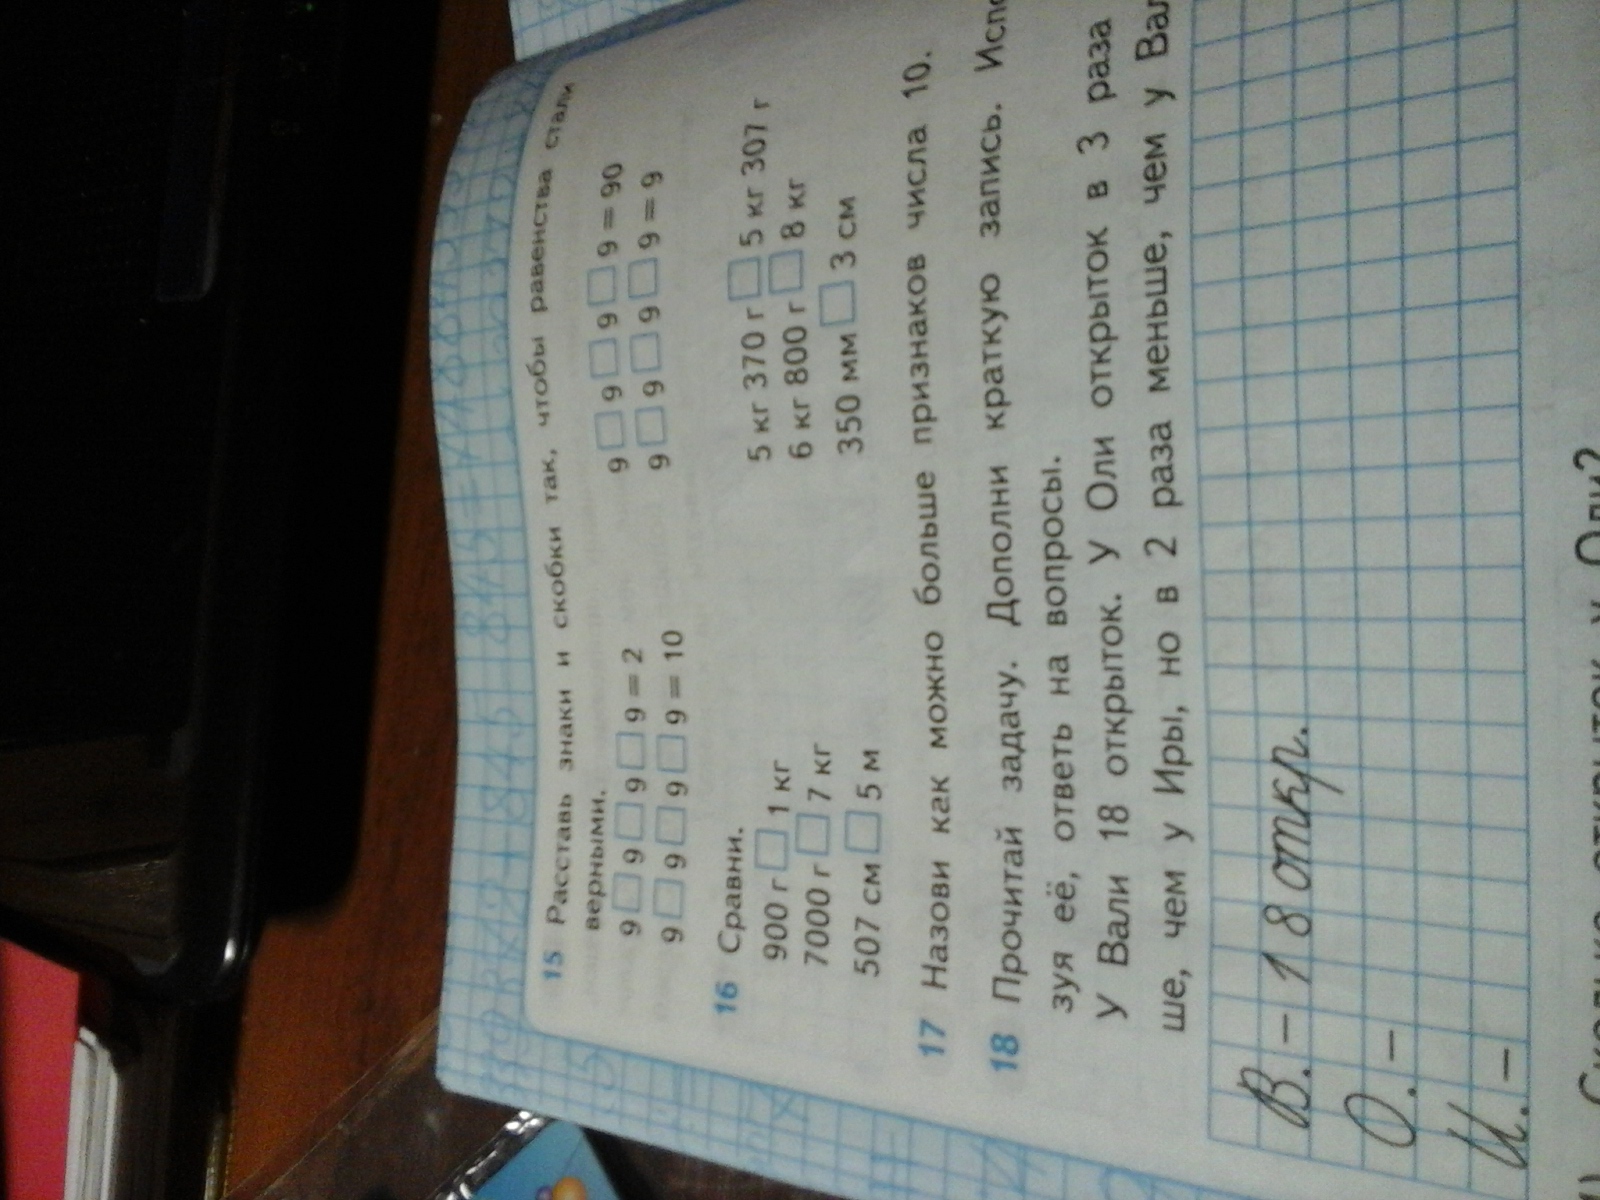 15 Расставь знаки и скобки так, чтобы равенства стали
верными.
9 □ 9 □ 9 □ 9 = 2 9 □ 9 □ 9 □ 9 = 90
9 □ 9 □ 9 □ 9 = 10 9 □ 9 □ 9 □ 9 = 9
16 Сравни.
900 г □ 1 кг 5 кг 370 г □ 5 кг 307 г
7000 г □ 7 кг 6 кг 800 г □ 8 кг
507 см □ 5 м 350 мм □ 3 см
17 Назови как можно больше признаков числа 10.
18 Прочитай задачу. Дополни краткую запись. Испо
зуя её, ответь на вопросы.
У Вали 18 открыток. У Оли открыток в 3 раза
ше, чем у Иры, но в 2 раза меньше, чем у Вал
В. – 18 откр.
О. –
И. –
Сколько открыток у Оли?